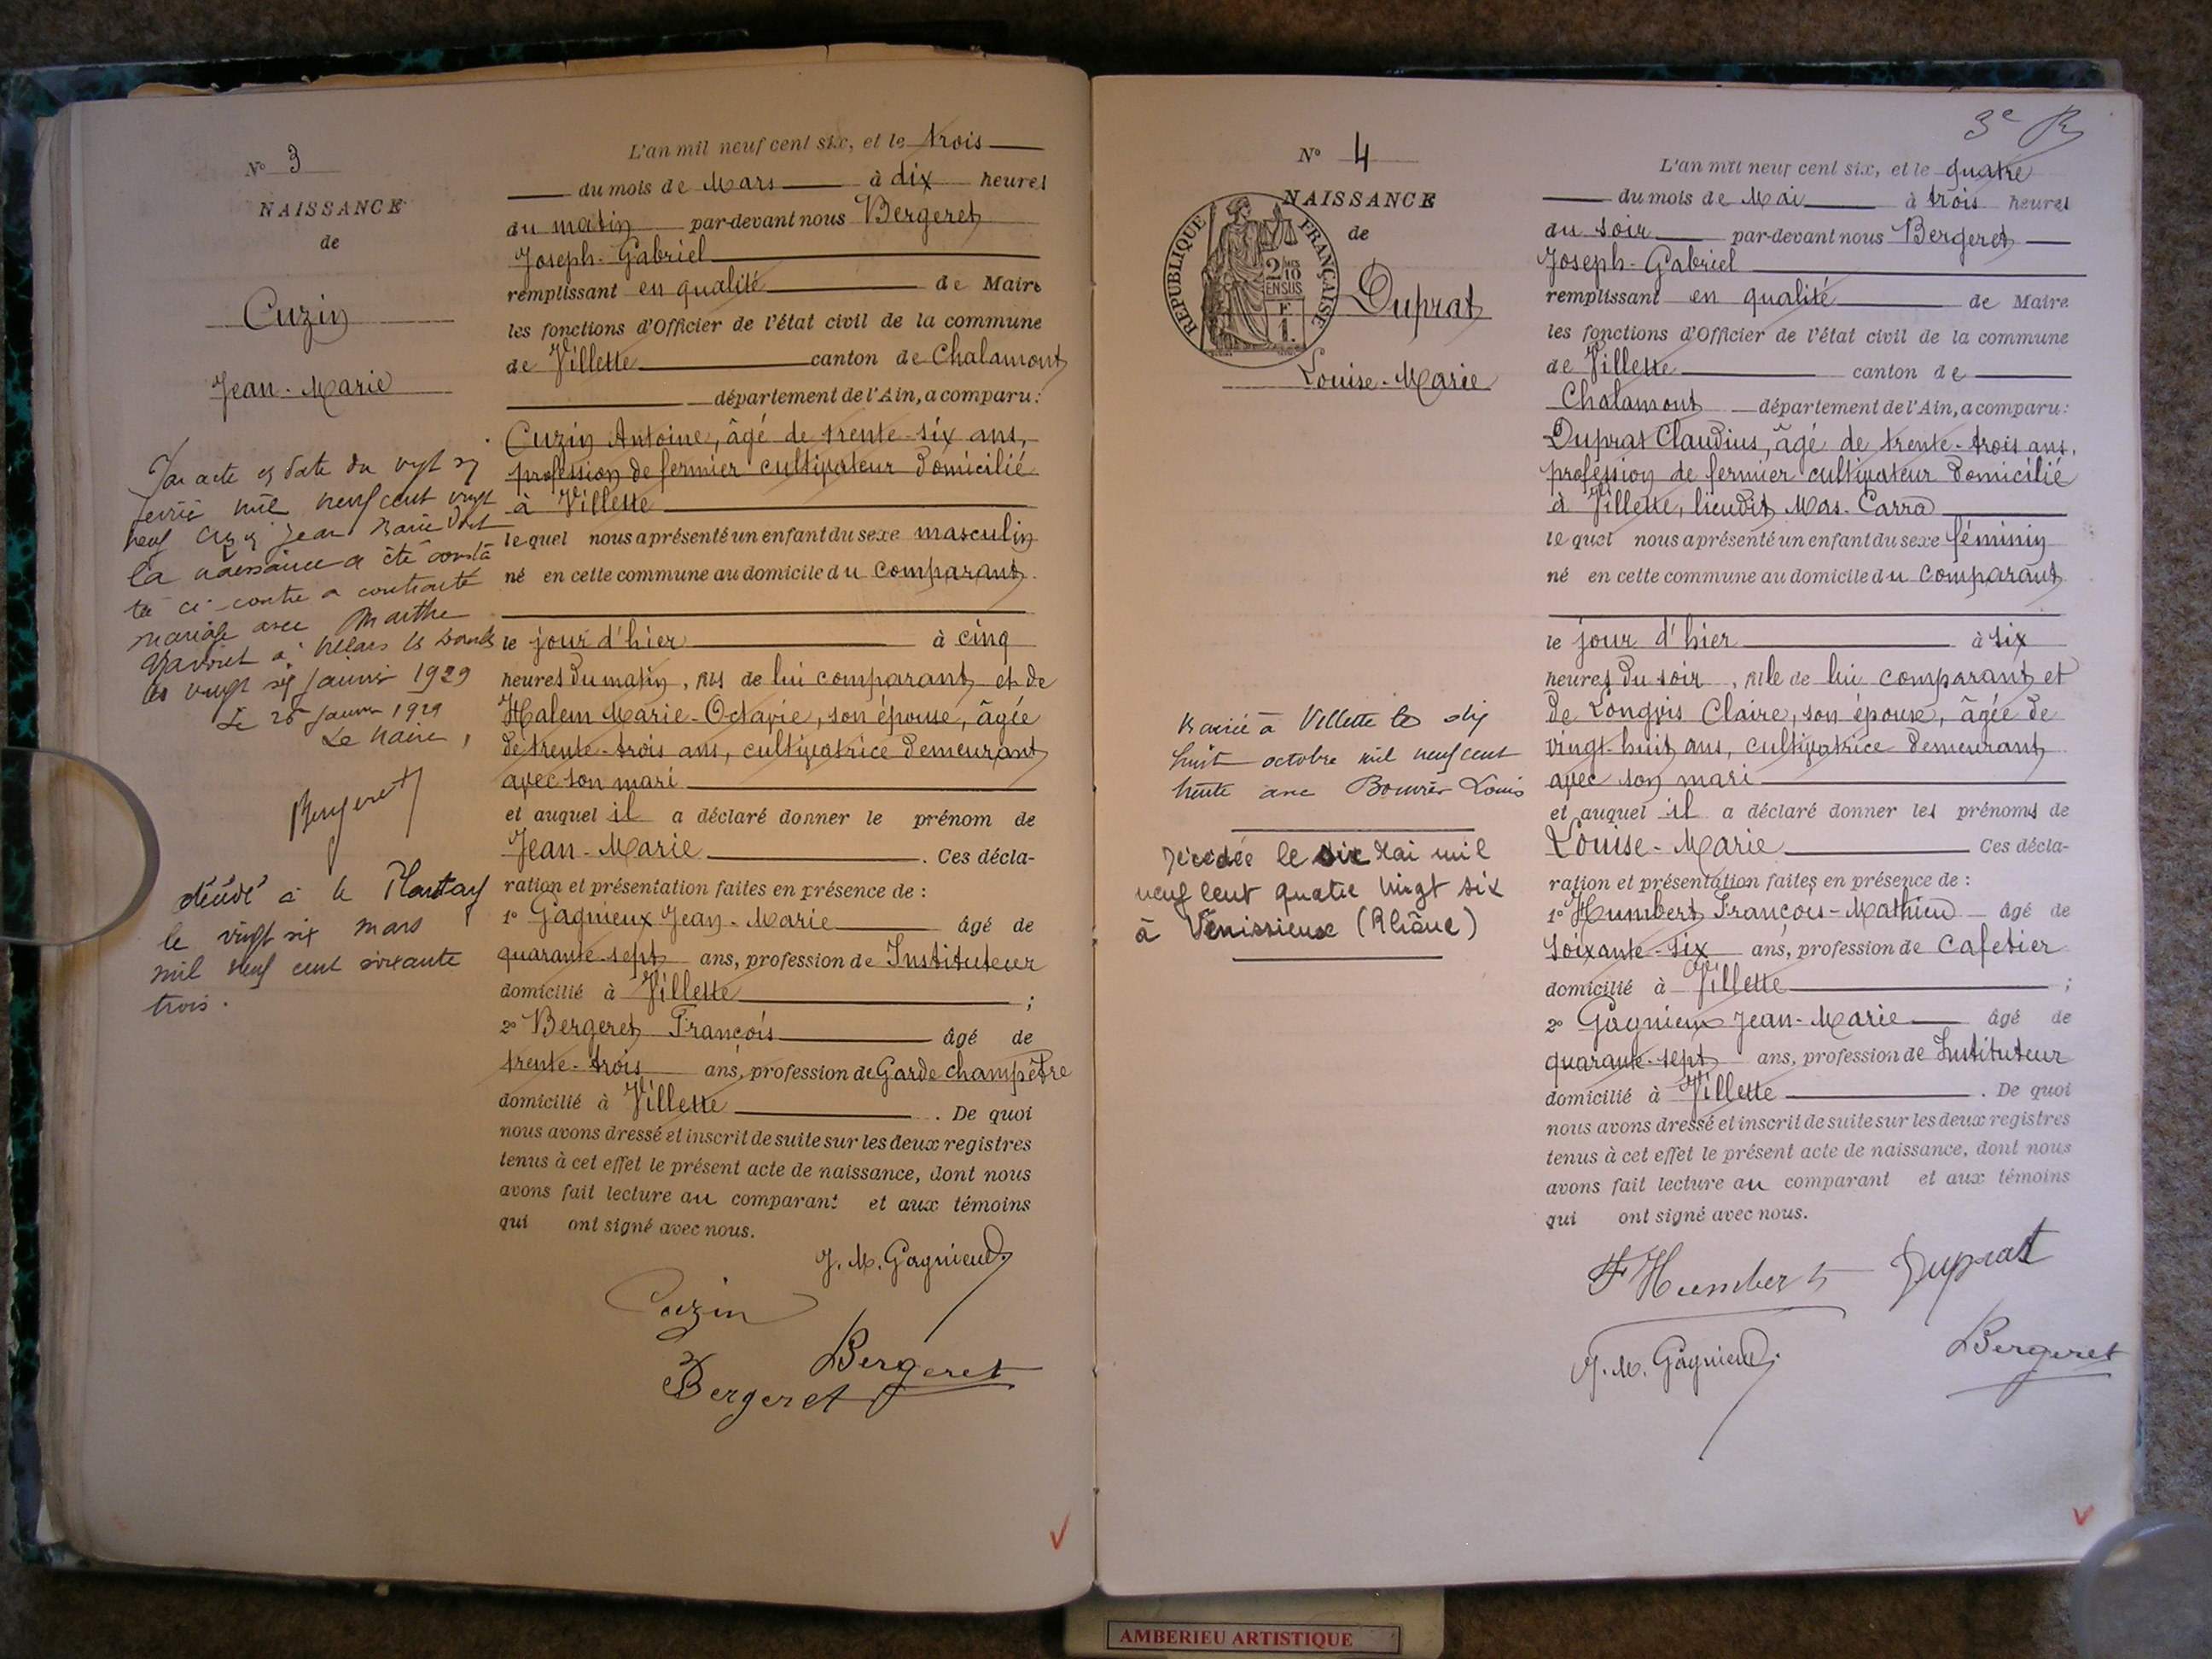 N° 3
NAISSANCE
de
Cuzin
Jean-Marie
Par acte en date du vingt
mil neuf cent vingt
neuf Cuzin Jean Marie dont
la naissance a été consta
tée ci-contre a contracté
mariage avec Marthe
à Villars les Dombes
le vingt janvier 1929
Le 26 janvier 1929
Le Maire,
Bergeret
décédé à le Plantay
le vingt six mars
mil neuf cent soixante
trois.
L'an mil neuf cent six, et le trois
du mois de Mars à dix heures
du matin par-devant nous Bergeret
Joseph-Gabriel
remplissant en qualité de Maire
les fonctions d'Officier de l'état civil de la commune
de Villette canton de Chalamont
département de l'Ain, a comparu:
Cuzin Antoine, âgé de trente-six ans,
profession de fermier cultivateur domicilié
à Villette
lequel nous a présenté un enfant du sexe masculin
né en cette commune au domicile du comparant
le jour d'hier à cinq
heures du matin, fils de lui comparant et de
Halem Marie-Octavie, son épouse, âgée
de trente-trois ans, cultivatrice demeurant
avec son mari
et auquel il a déclaré donner le prénom de
Jean-Marie. Ces décla-
ration et présentation faites en présence de :
1° Gagnieux Jean-Marie âgé de
quarante-sept ans, profession de Instituteur
domicilié à Villette ;
2° Bergeret François âgé de
trente-trois ans, profession de Garde champêtre
domicilié à Villette. De quoi
nous avons dressé et inscrit de suite sur les deux registres
tenus à cet effet le présent acte de naissance, dont nous
avons fait lecture au comparant et aux témoins
qui ont signé avec nous.
J. M. Gagnieux
Cuzin
Bergeret
Bergeret
3e R
N° 4
NAISSANCE
de
REPUBLIQUE FRANÇAISE
2/10
EN SUS
F
1.
Duprat
Louise-Marie
Mariée à Villette le dix
huit octobre mil neuf cent
trente avec Bouvier Louis
Décédée le six Mai mil
neuf cent quatre vingt six
à Vénissieux (Rhône)
L'an mil neuf cent six, et le quatre
du mois de Mai à trois heures
du soir par-devant nous Bergeret
Joseph-Gabriel
remplissant en qualité de Maire
les fonctions d'Officier de l'état civil de la commune
de Villette canton de
Chalamont département de l'Ain, a comparu:
Duprat Claudius, âgé de trente-trois ans,
profession de fermier cultivateur domicilié
à Villette, lieudit Mas-Carra
lequel nous a présenté un enfant du sexe féminin
né en cette commune au domicile du comparant
le jour d'hier à six
heures du soir, fille de lui comparant et
de Longvis Claire, son épouse, âgée de
vingt-huit ans, cultivatrice demeurant
avec son mari
et auquel il a déclaré donner les prénoms de
Louise-Marie Ces décla-
ration et présentation faites en présence de :
1° Humbert François-Mathieu âgé de
soixante-six ans, profession de cafetier
domicilié à Villette ;
2° Gagnieux Jean-Marie âgé de
quarante-sept ans, profession de Instituteur
domicilié à Villette. De quoi
nous avons dressé et inscrit de suite sur les deux registres
tenus à cet effet le présent acte de naissance, dont nous
avons fait lecture au comparant et aux témoins
qui ont signé avec nous.
F Humbert Duprat
J. M. Gagnieux
Bergeret
AMBERIEU ARTISTIQUE